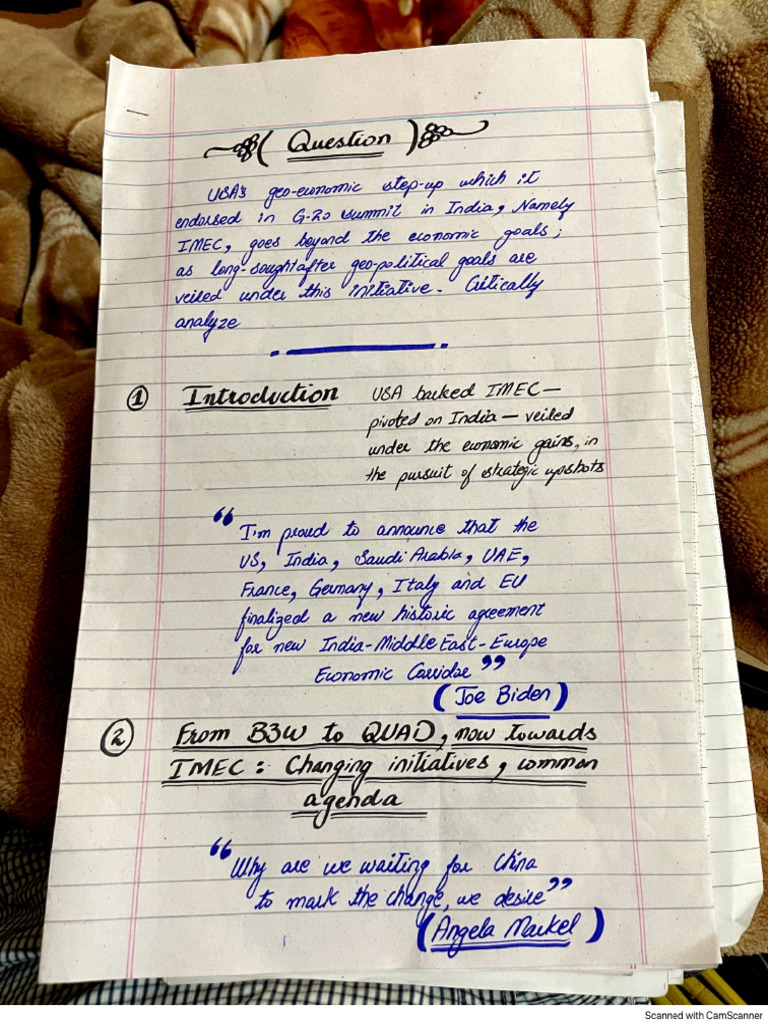 ( Question )
USA's geo-economic step-up which it
endorsed in G-20 summit in India, Namely
IMEC, goes beyond the economic goals;
as long-soughtafter geo-political goals are
veiled under this initiative. Critically
analyze
① Introduction
USA backed IMEC—
pivoted on India — veiled
under the economic gains, in
the pursuit of strategic upshots
“I'm proud to announce that the
US, India, Saudi Arabia, UAE,
France, Germany, Italy and EU
finalized a new historic agreement
for new India-Middle East-Europe
Economic Corridor”
(Joe Biden)
② From B3W to QUAD, now towards
IMEC: Changing initiatives, common
agenda
“Why are we waiting for China
to mark the change, we desire”
(Angela Markel)
Scanned with CamScanner